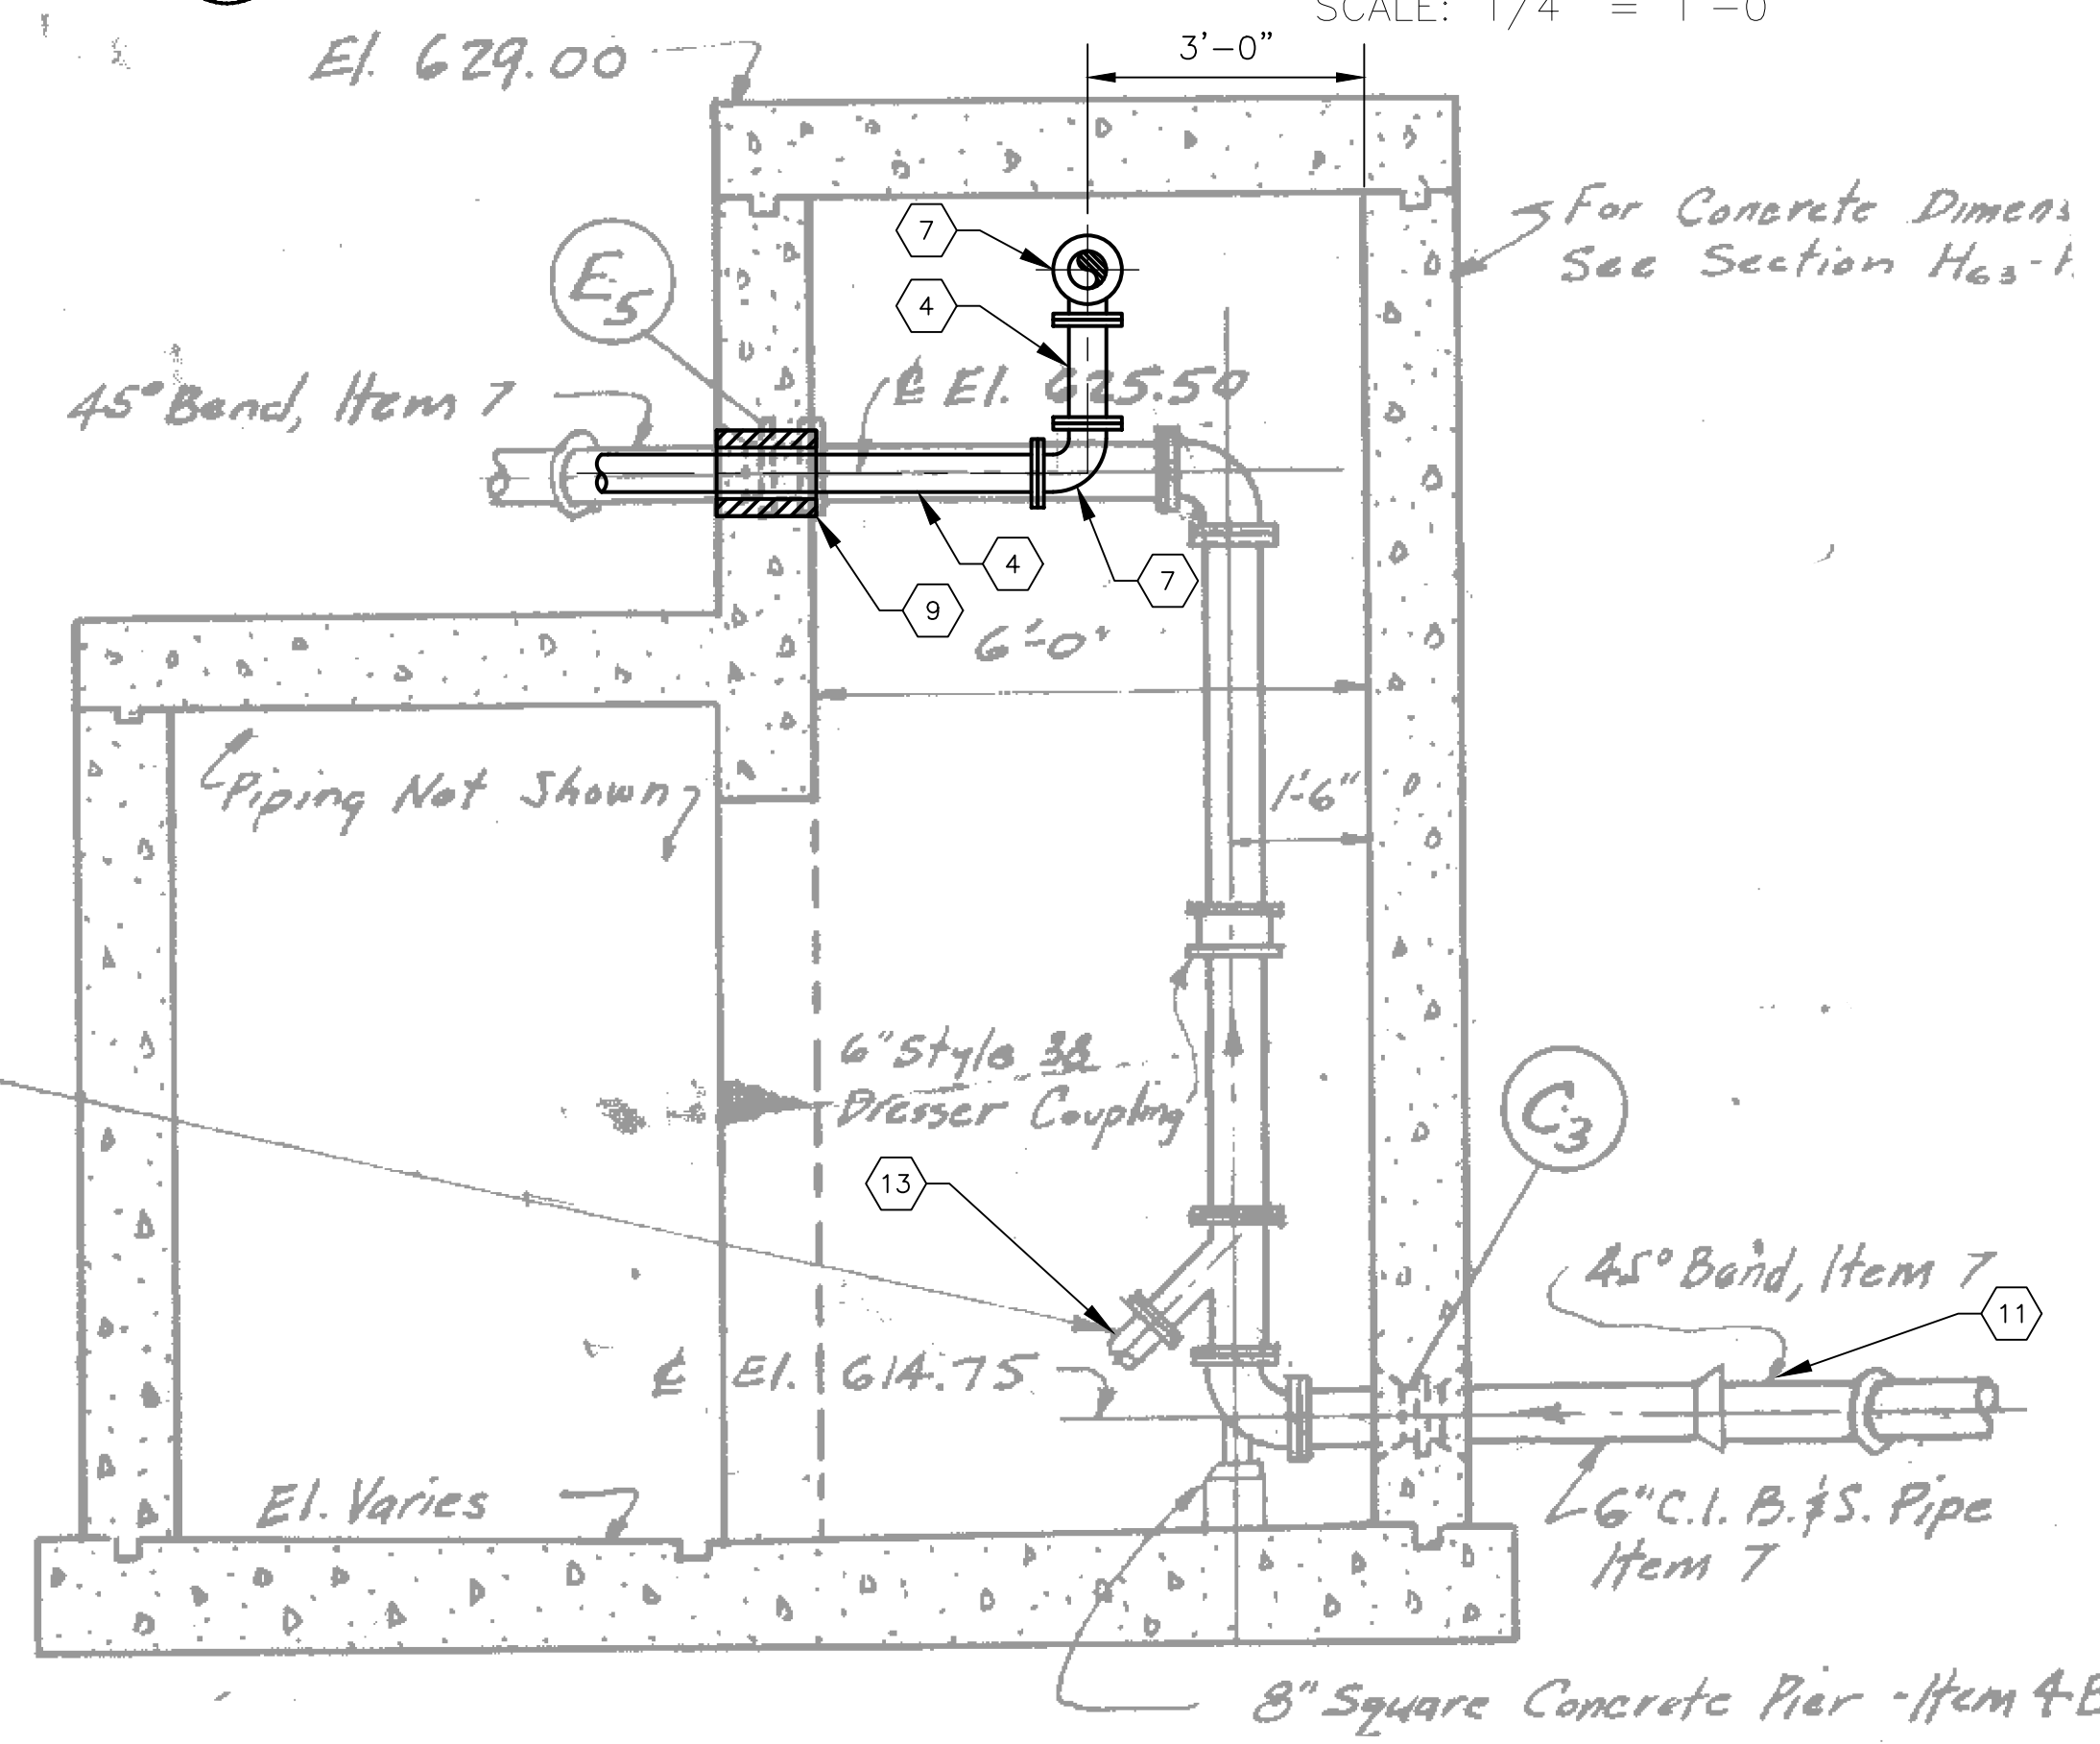 SCALE: 1/4" = 1'-0"
3'-0"
El. 629.00
For Concrete Dimens
See Section H63-H
7
E5
4
45° Bend, Item 7
℄ El. 625.50
4
7
9
6'-0"
Piping Not Shown
1'-6"
6" Style 38
Dresser Coupling
C3
13
45° Bend, Item 7
11
℄ El. 614.75
El. Varies
6" C.I. B. & S. Pipe
Item 7
8" Square Concrete Pier - Item 4B